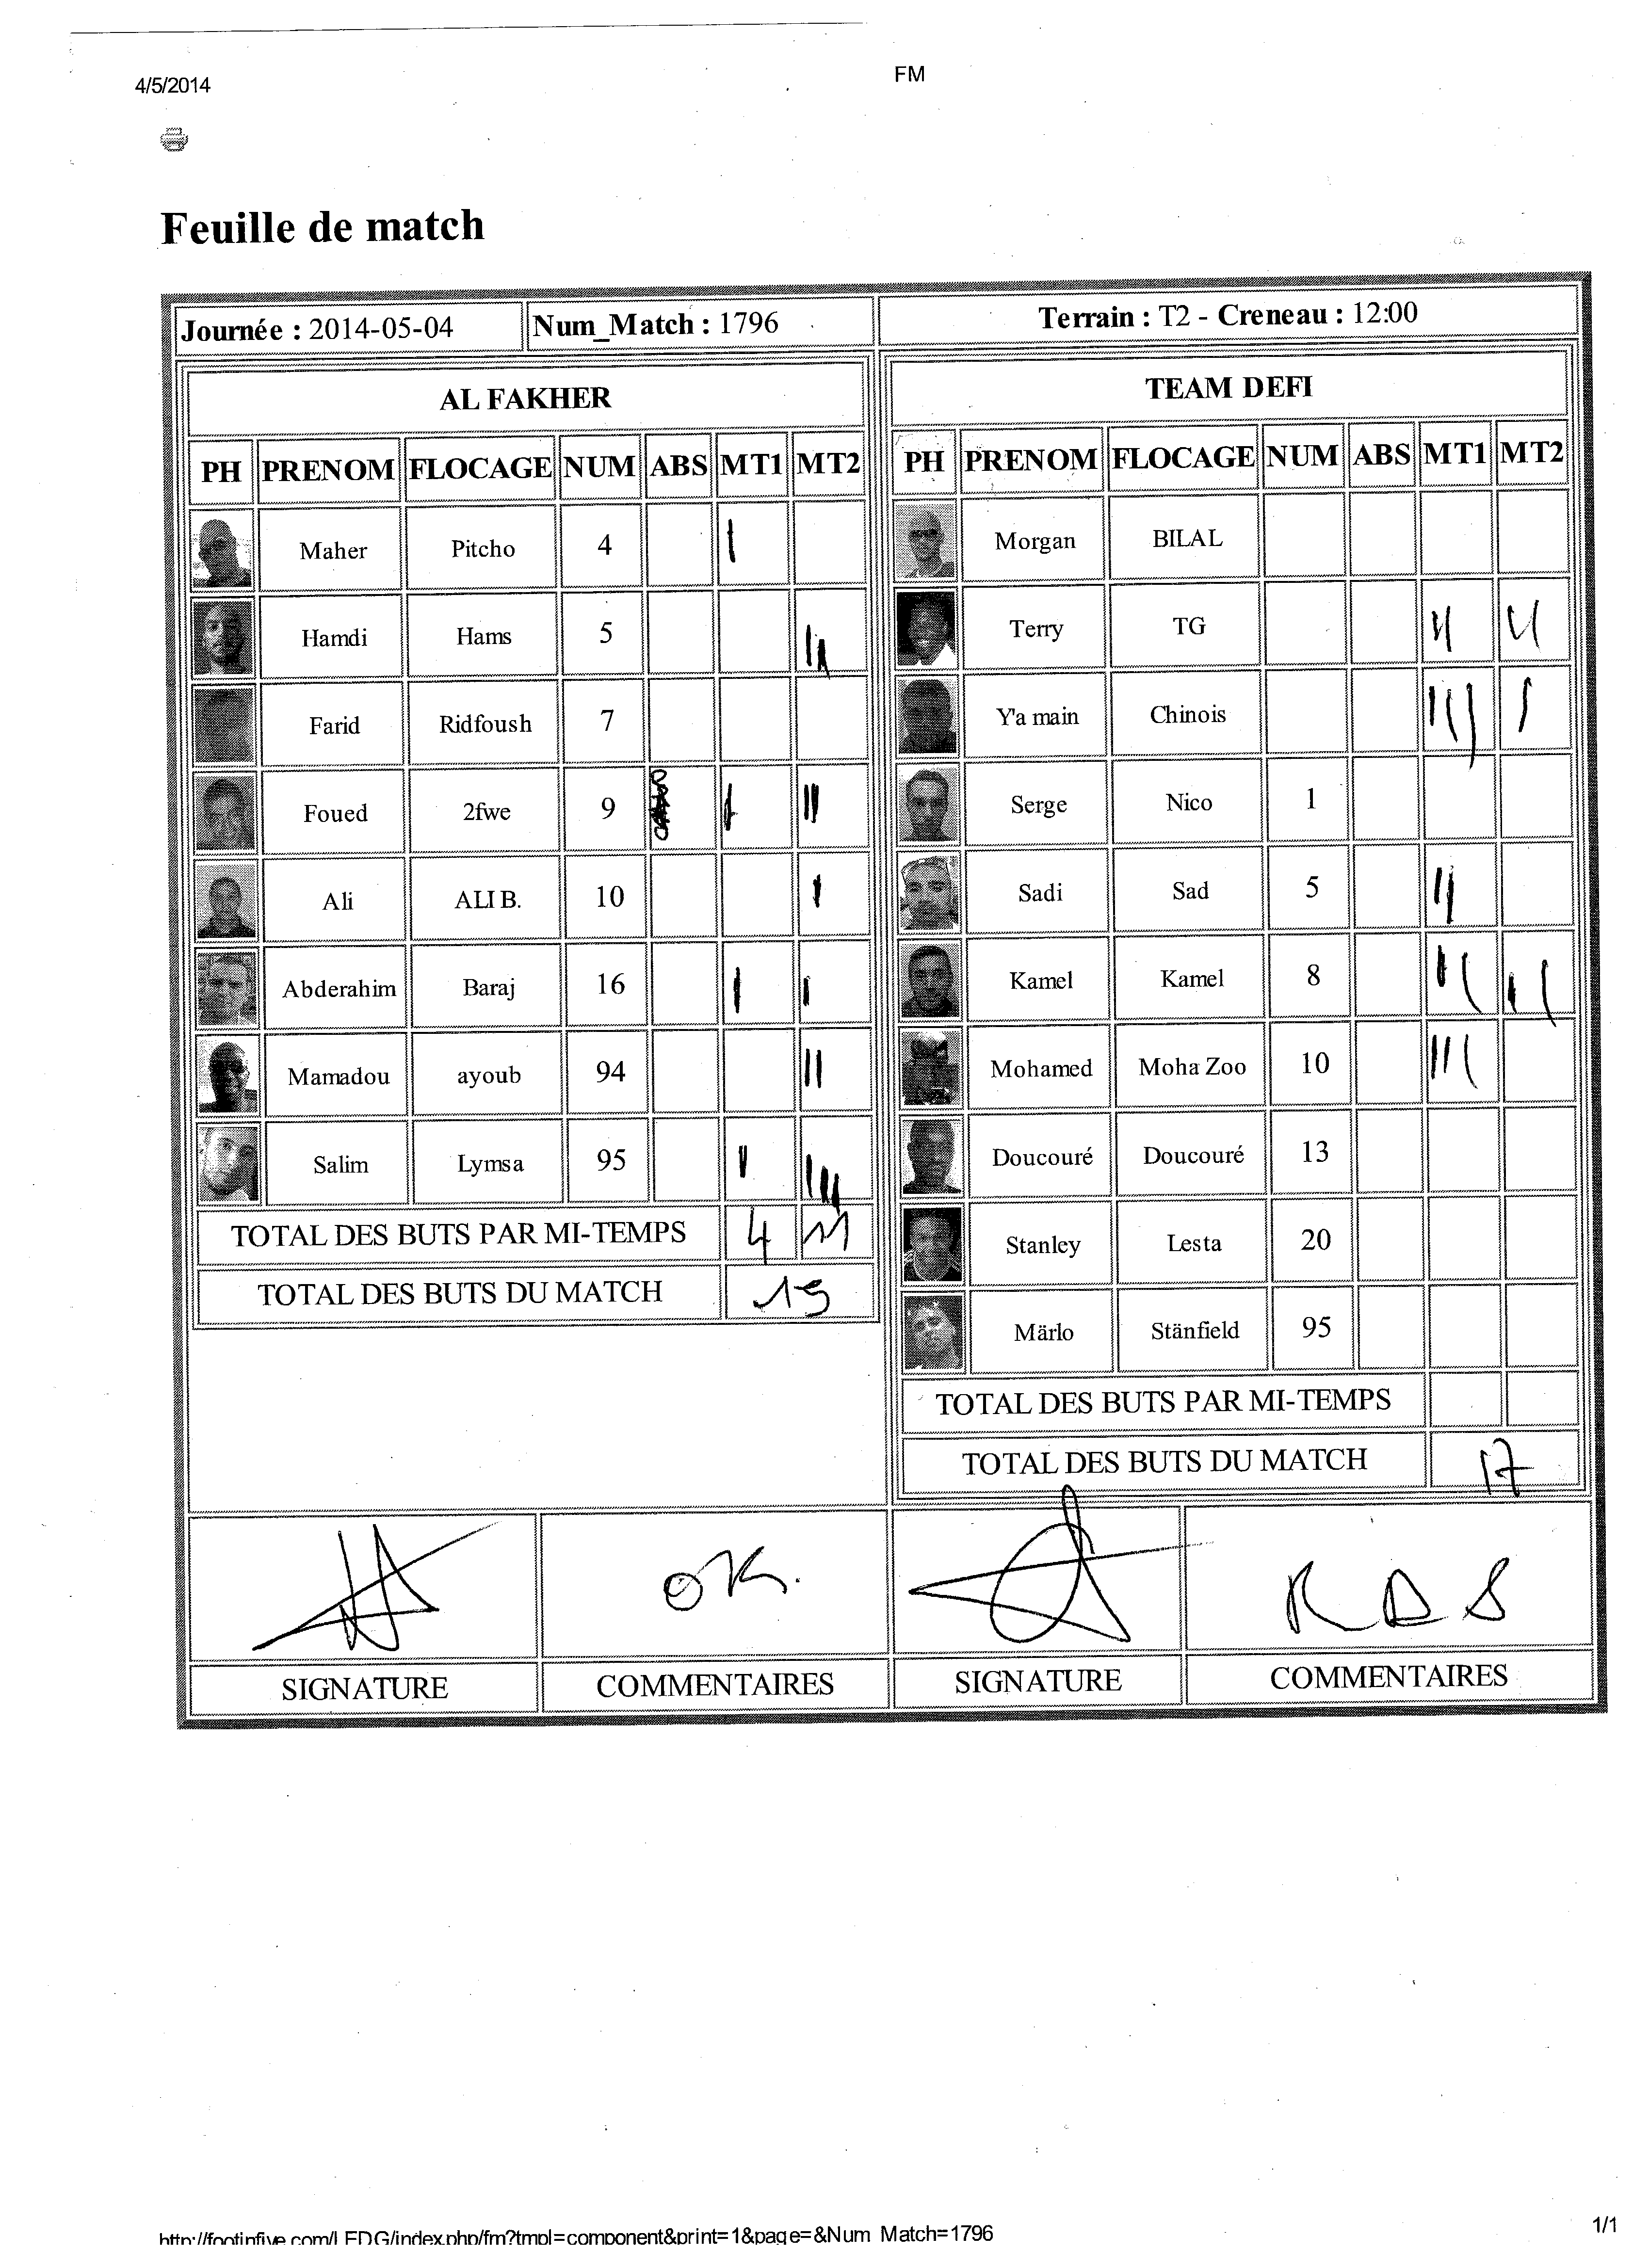 4/5/2014
FM
Feuille de match
Journée : 2014-05-04 Num_Match : 1796 Terrain : T2 - Creneau : 12:00
AL FAKHER
PH PRENOM FLOCAGE NUM ABS MT1 MT2
Maher Pitcho 4
Hamdi Hams 5
Farid Ridfoush 7
Foued 2fwe 9
Ali ALI B. 10
Abderahim Baraj 16
Mamadou ayoub 94
Salim Lymsa 95
TOTAL DES BUTS PAR MI-TEMPS 4 11
TOTAL DES BUTS DU MATCH 15
TEAM DEFI
PH PRENOM FLOCAGE NUM ABS MT1 MT2
Morgan BILAL
Terry TG
Y'a main Chinois
Serge Nico 1
Sadi Sad 5
Kamel Kamel 8
Mohamed Moha Zoo 10
Doucouré Doucouré 13
Stanley Lesta 20
Märlo Stänfield 95
TOTAL DES BUTS PAR MI-TEMPS
TOTAL DES BUTS DU MATCH 17
OK. RAS
SIGNATURE COMMENTAIRES SIGNATURE COMMENTAIRES
http://footinfive.com/LEDG/index.php/fm?tmpl=component&print=1&page=&Num_Match=1796
1/1